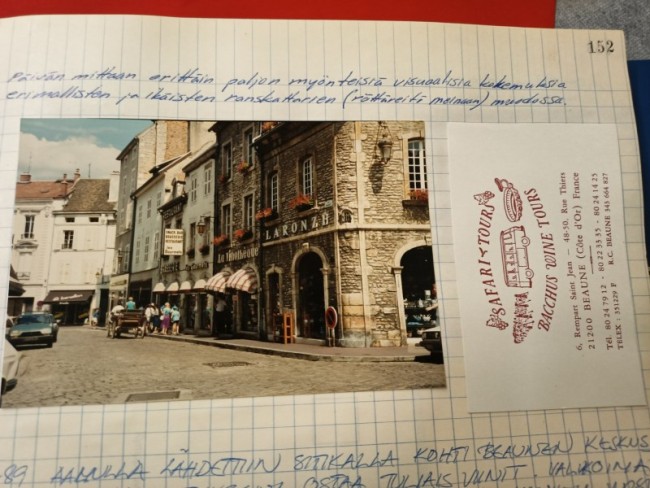 152
Päivän mittaan erittäin paljon myönteisiä visuaalisia kokemuksia
erimallisten ja ikäisten ranskattarien (röttäreitä meinaan) muodossa.
La Vinothèque
LARONZE
SAFARI TOUR
BACCHUS WINE TOURS
6, Rempart Saint Jean — 48-50, Rue Thiers
21200 BEAUNE (Côte d'Or) France
Tél. 80 24 79 12 - 80 22 35 35 - 80 24 14 25
TELEX : 351129 F R.C. BEAUNE 343 664 827
89 AAMULLA LÄHDETTIIN SITIKALLA KOHTI BEAUNEN KESKUS
OSTAA TULIAISVIINIT. VALIKOIMA